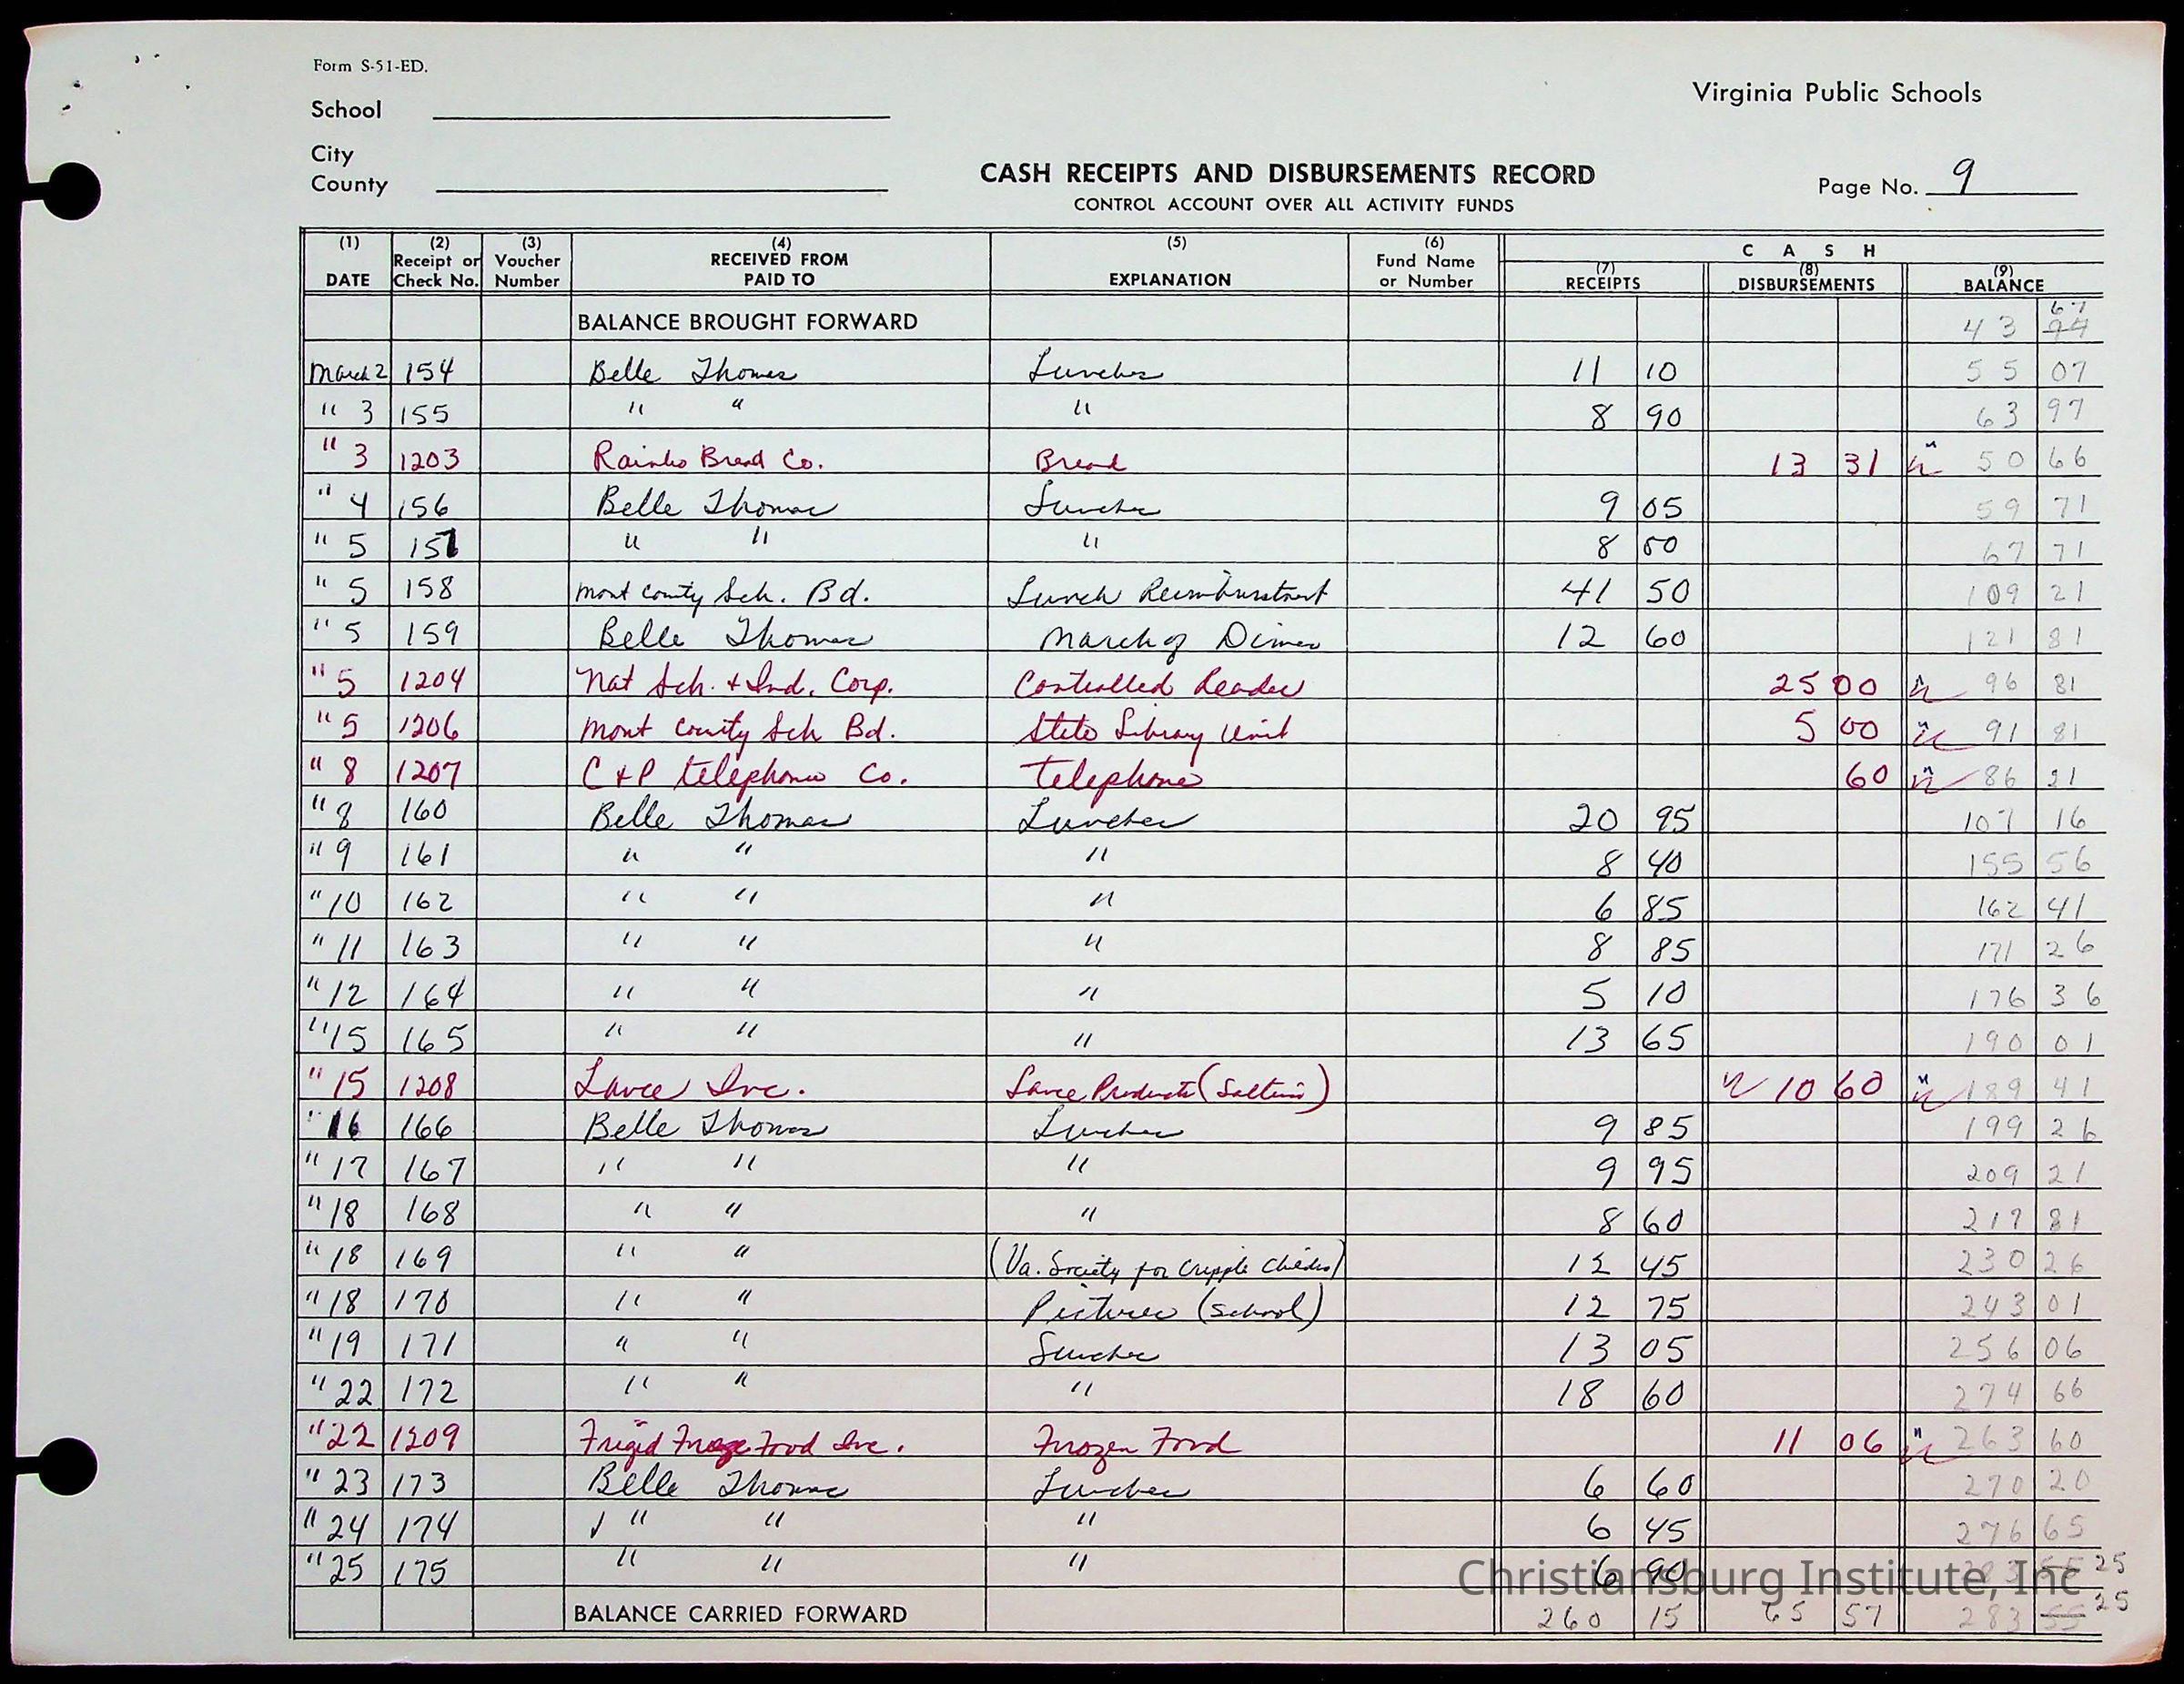 Form S-51-ED.
Virginia Public Schools
School
City
County
CASH RECEIPTS AND DISBURSEMENTS RECORD
CONTROL ACCOUNT OVER ALL ACTIVITY FUNDS
Page No. 9
(1) (2) (3) (4) (5) (6) C A S H
DATE Receipt or Check No. Voucher Number RECEIVED FROM PAID TO EXPLANATION Fund Name or Number (7) RECEIPTS (8) DISBURSEMENTS (9) BALANCE
BALANCE BROUGHT FORWARD 43 97
March 2 154 Belle Thomas Lunches 11 10 55 07
" 3 155 " " " 8 90 63 97
" 3 1203 Rainbo Bread Co. Bread 13 31 50 66
" 4 156 Belle Thomas Lunches 9 05 59 71
" 5 157 " " " 8 00 67 71
" 5 158 Mont County Sch. Bd. Lunch Reimburstment 41 50 109 21
" 5 159 Belle Thomas March of Dimes 12 60 121 81
" 5 1204 Nat Sch. + Ind. Corp. Controlled Reader 25 00 96 81
" 5 1206 Mont County Sch Bd. State Library Unit 5 00 91 81
" 8 1207 C & P telephone Co. Telephone 60 86 21
" 8 160 Belle Thomas Lunches 20 95 107 16
" 9 161 " " " 8 40 155 56
" 10 162 " " " 6 85 162 41
" 11 163 " " " 8 85 171 26
" 12 164 " " " 5 10 176 36
" 15 165 " " " 13 65 190 01
" 15 1208 Lance Inc. Lance Products (Saltines) 10 60 189 41
" 16 166 Belle Thomas Lunches 9 85 199 26
" 17 167 " " " 9 95 209 21
" 18 168 " " " 8 60 217 81
" 18 169 " " (Va. Society for Cripple Children) 12 45 230 26
" 18 170 " " Pictures (school) 12 75 243 01
" 19 171 " " Lunches 13 05 256 06
" 22 172 " " " 18 60 274 66
" 22 1209 Frigid Freeze Food Inc. Frozen Food 11 06 263 60
" 23 173 Belle Thomas Lunches 6 60 270 20
" 24 174 " " " 6 45 276 65
" 25 175 " " " 6 90 283 55 25
BALANCE CARRIED FORWARD 260 15 65 57 283 55 25
Christiansburg Institute, Inc